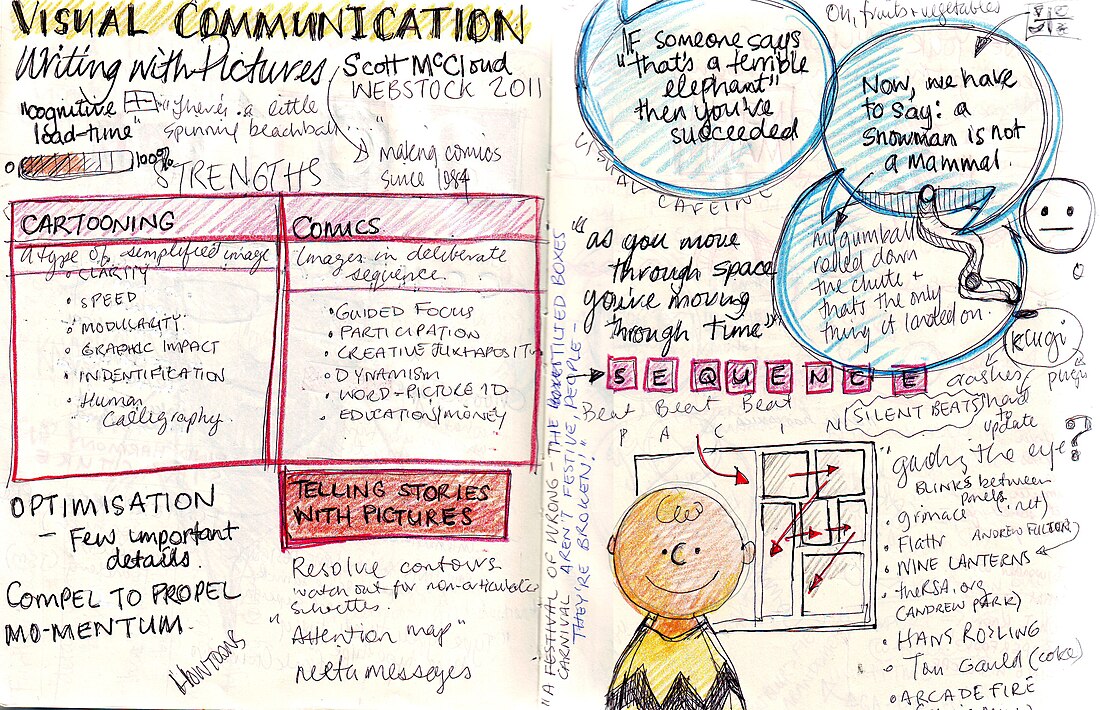 VISUAL COMMUNICATION
Writing with Pictures
Scott McCloud
WEBSTOCK 2011
"cognitive
load-time"
"There's a little
spinning beachball..."
100%
making comics
since 1984
STRENGTHS
CARTOONING
A type of simplified image
CLARITY
SPEED
MODULARITY
GRAPHIC IMPACT
INDENTIFICATION
Human
Calligraphy.
COMICS
Images in deliberate
sequence.
GUIDED FOCUS
PARTICIPATION
CREATIVE JUXTAPOSIT
DYNAMISM
WORD-PICTURE ID
EDUCATION/MONEY
OPTIMISATION
- Few important
details.
COMPEL TO PROPEL
MO-MENTUM.
Howtoons
TELLING STORIES
WITH PICTURES
Resolve contours
watch out for non-articulate
"Attention map"
meta messages
"A FESTIVAL OF WRONG - THE TILTED BOXES
CARNIVAL AREN'T FESTIVE, PEOPLE -
THEY'RE BROKEN!"
Oh, fruits + vegetables
IF someone says
"that's a terrible
elephant"
then you've
succeeded
VISUAL CAFEINE
Now, we have
to say: a
snowman is not
a mammal.
my gumball
rolled down
the chute +
thats the only
thing it landed on.
"as you move
through space
you're moving
through time"
SEQUENCE
Beat Beat Beat
SILENT BEATS
P A C I N
crashes
hard
to
update
plugin
?
"guiding the eye"
BLINKS between
panels
grimace (.net)
Flattr ANDREW FULTON
NINE LANTERNS
theRSA.org
(ANDREW PARK)
HANS ROSLING
Tom Gauld (coke)
ARCADE FIRE